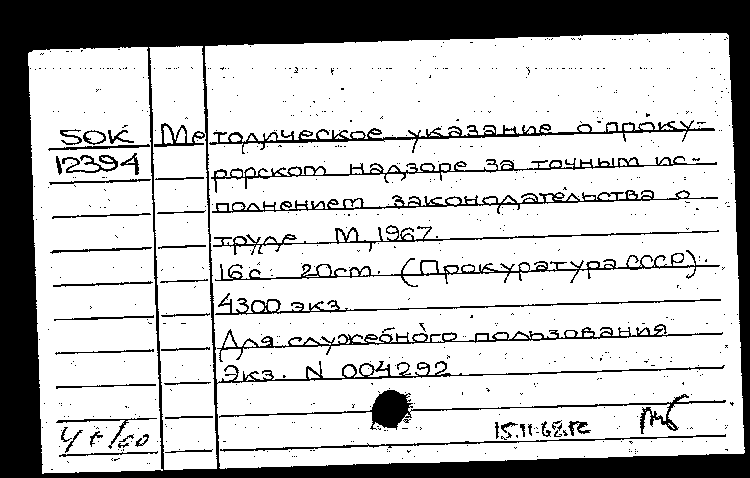 50К Методическое указание о проку-
12394 рорском надзоре за точным ис-
полнением законодательства о
труде. М, 1967.
16с. 20cm. (Прокуратура СССР).
4300 экз.
Для служебного пользования
Экз. N 004292
15.11.68.